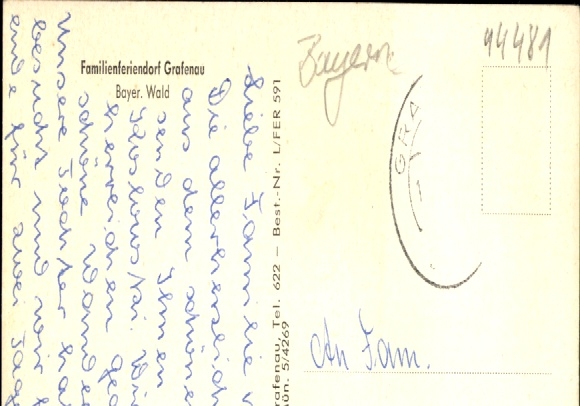 Familienferiendorf Grafenau
Bayer. Wald
Liebe Familie
Die allerherzlich
aus dem schönen
senden Ihnen
herrlichen
schöne Wander
unsere Tochter
besucht und wir
ende für zwei Tage
rafenau, Tel. 622 – Best.-Nr. L/FER 591
ün. 5/4269
Bayern
94481
GRA
An Fam.